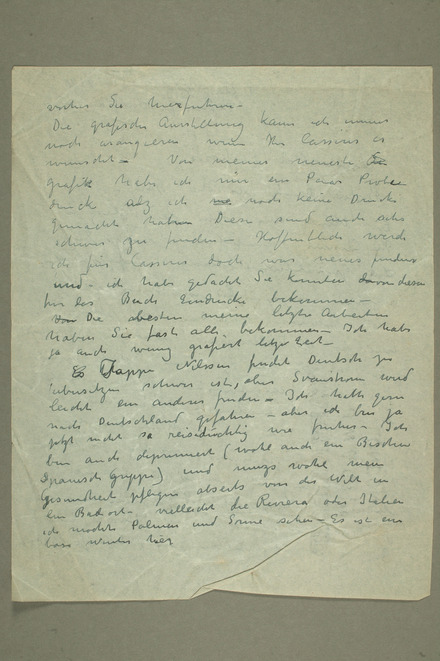 Sie hierfuhren –
Die grafische Ausstellung kann ich immer
noch arrangieren wenn Hr Cassirer es
wünscht – Von meiner neueste
grafik habe ich nur ein Paar Probe
drucke ich noch keine Drucke
gemacht haben Diese sind auch sehr
schwer zu finden – Hoffentlich werde
ich für Cassirer doch was neues finden
und – ich habe gedacht Sie könnten davon diesen
für das Buch Eindrucke bekommen –
Die meine letzte Arbeiten
haben Sie fast alle bekommen – Ich habe
ja auch wenig grafiert letzte Zeit –
Jappe Nilssen findet Deutsch zu
übersetzen schwer ist, aber Svanstrom wird
leicht ein anderer finden – Ich hatte gern
nach Deutschland gefahren – aber ich bin ja
jetzt nicht so reisetüchtig wie früher – Ich
bin auch deprimiert (wohl auch ein Bischen
Spanisch Grippe) und muss wohl mein
Gesundheit pflegen abseits von der Welt in
ein Badort – vielleicht die Riviera oder Italien
ich möchte Palmen und Sonne sehen – Es ist ein
Winter hier